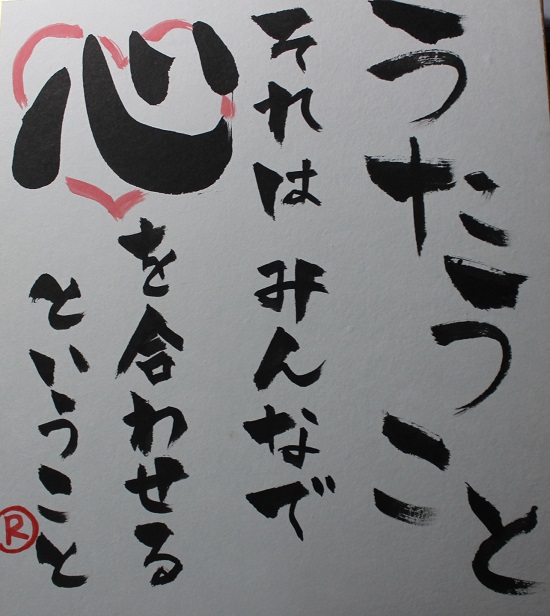 うたうこと
それはみんなで
心を合わせる
ということ
R